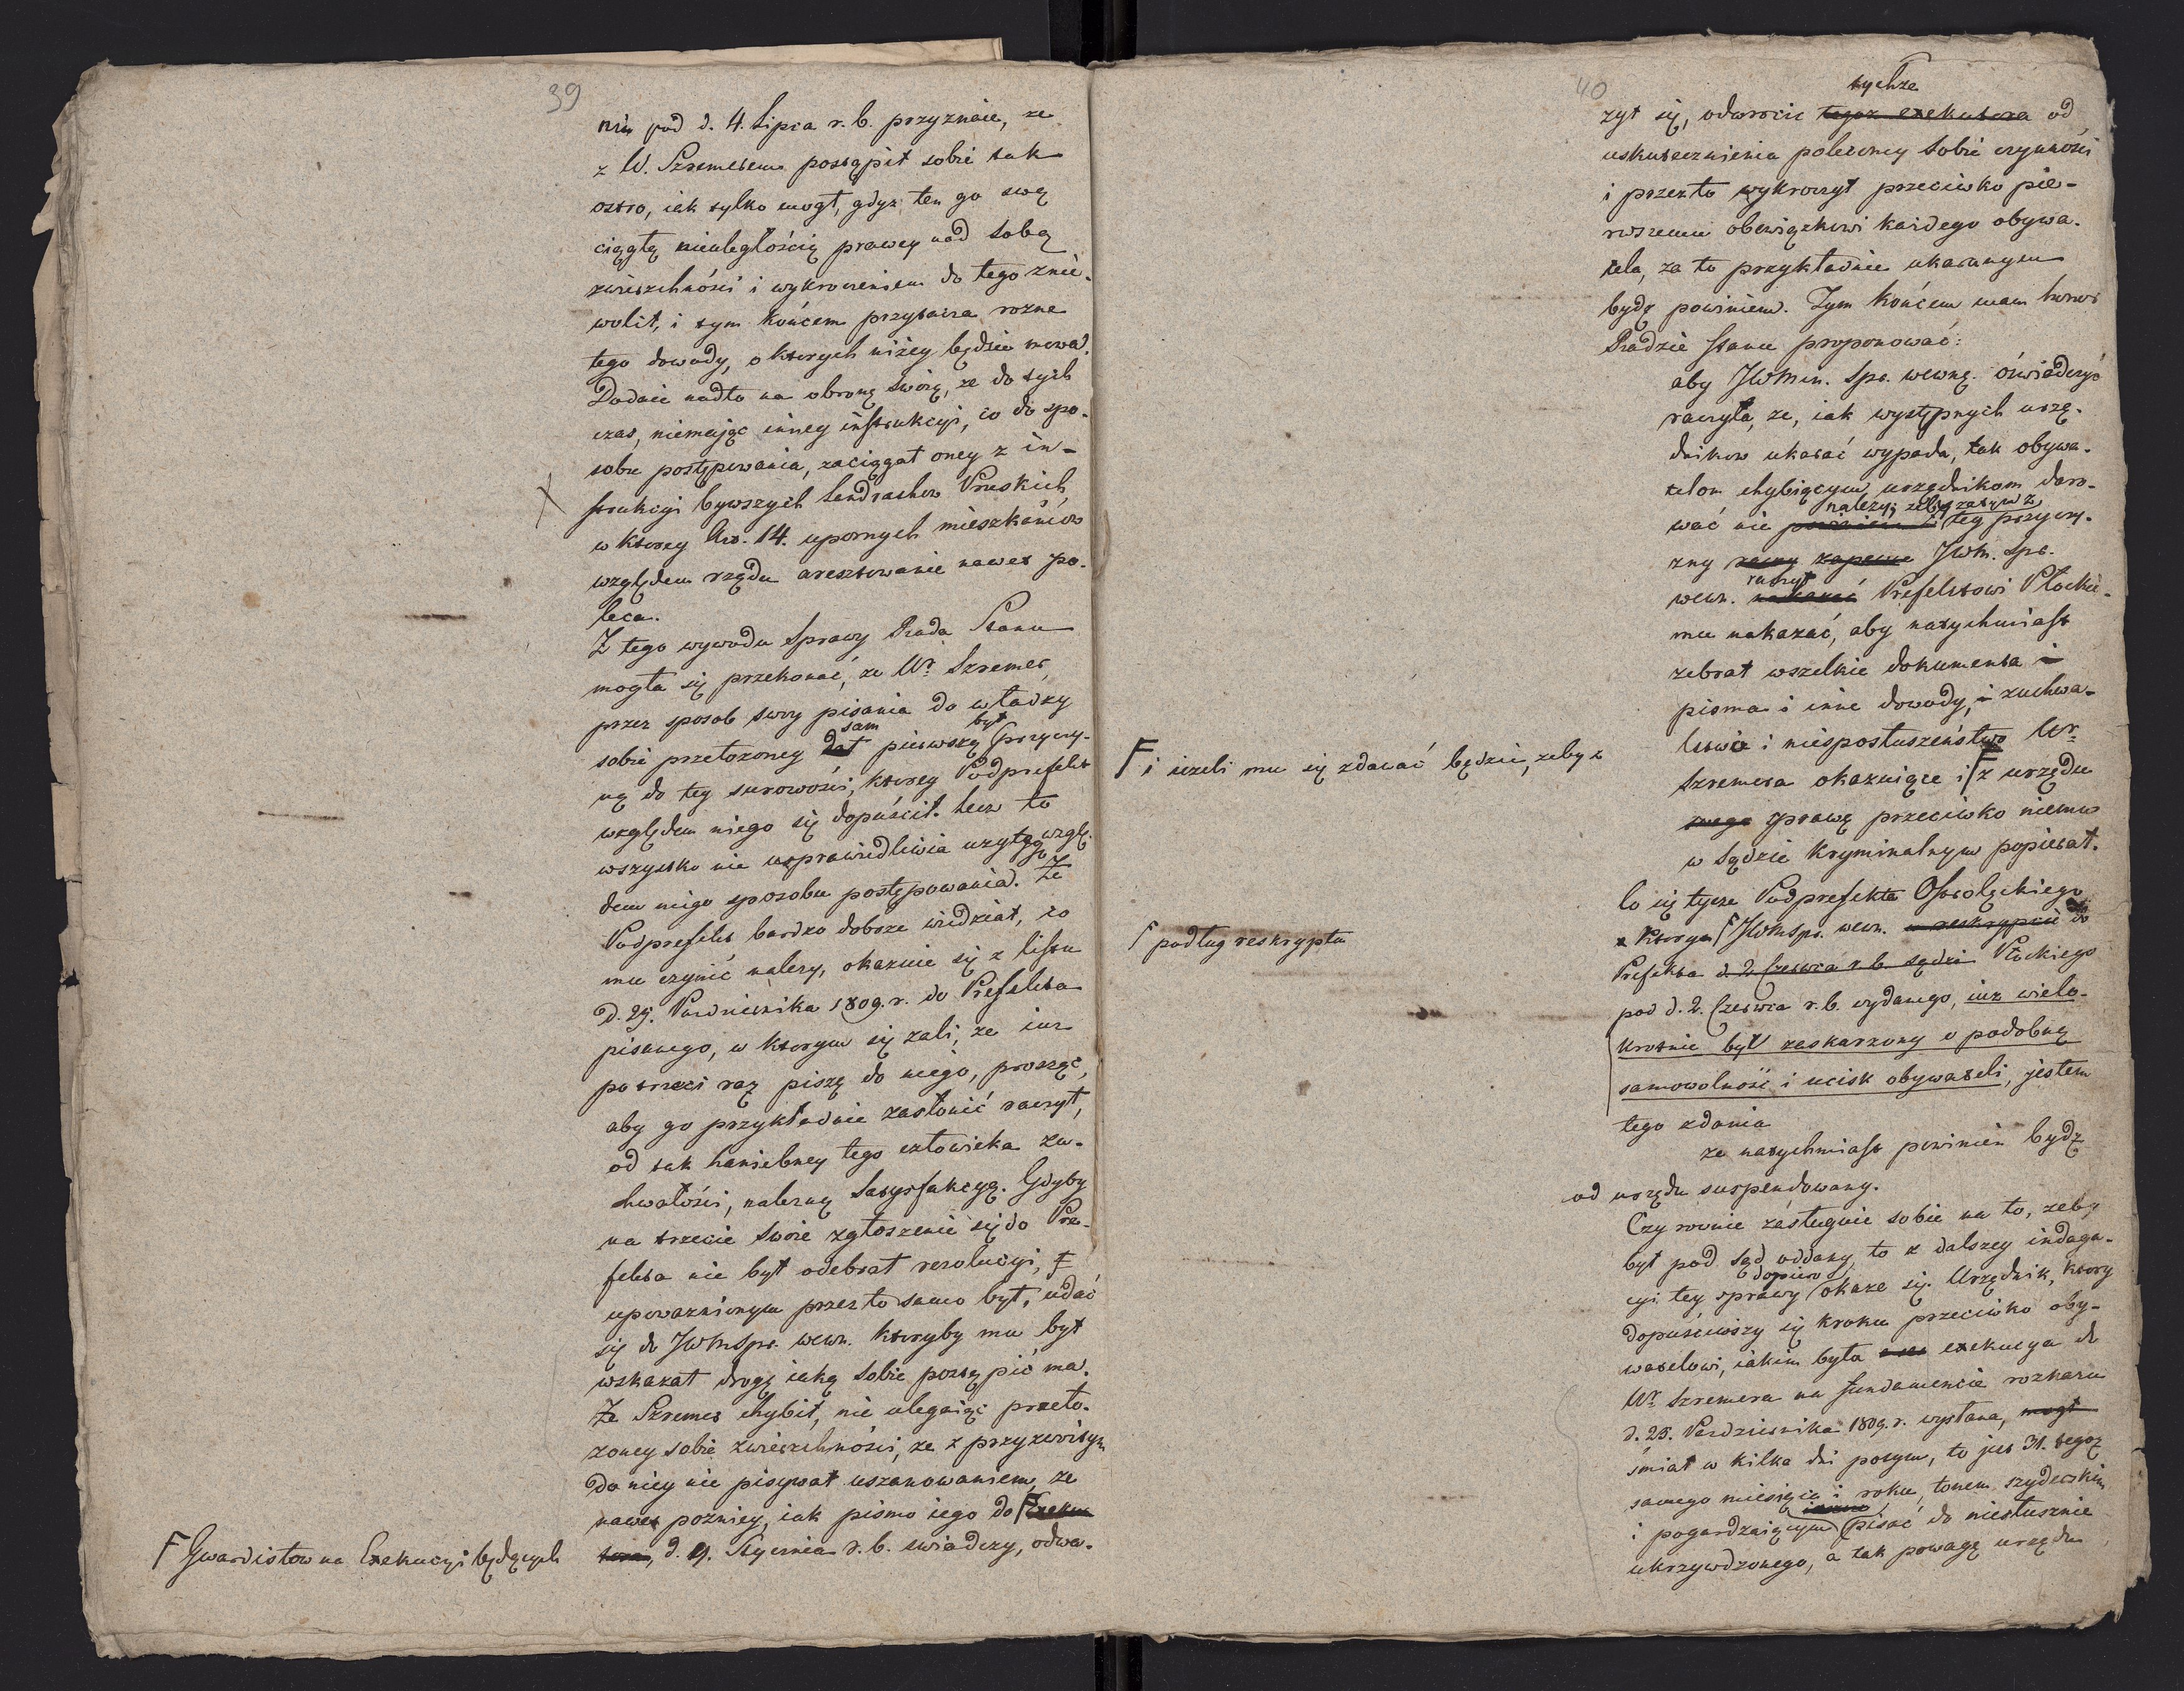 39
niu pod d. 4. Lipca r. b. przyznaie, ze
z W. Szremetem postąpił sobie tak
ostro, iak tylko mogł, gdyz ten go swą
ciągłą nieuległością prawey nad sobą
zwierzchności i wykroczeniem do tego znie-
wolił, i tym końcem przytacza rozne
tego dowody, o ktorych niżey będzie mowa.
Dodaie nadto na obronę swoię, ze do tych
czas, niemaiąc inney instrukcyi, co do spo-
sobu postępowania, zaciągał oney z in-
strukcyi bywszych Landrathow Pruskich
w ktorey Art. 14. upornych mieszkańców
względem rządu aresztowanie nawet po-
leca.
Z tego wywodu sprawy Rada Stanu
mogła się przekonać, ze Wr. Szremet,
przez sposob swoy pisania do władzy
sobie przełozoney dał sam pierwszą był przyczy-
ną do tey surowości, ktorey Podprefekt
względem niego się dopuścił. Lecz to
wszystko nie usprawiedliwia uzytego wzglę-
dem niego sposobu postępowania. Ze
Podprefekt bardzo dobrze wiedział, co
mu czynić nalezy, okazuie się z listu
D. 29. Pazdziernika 1809. r. do Prefekta
pisanego, w ktorym się zali, ze iuz
po trzeci raz piszę do niego, prosząc,
aby go przykładnie zasłonić raczył,
od tak haniebney tego człowieka zu-
chwałości, nalezną satysfakcyą. Gdyby
na trzecie swoie zgłoszenie się do Pre-
fekta nie był odebrał rezolucyi,
upowaznionym przez to samo był, udać
się do JWMspr. wewn. ktoryby mu był
wskazał drogę iaką sobie postąpić ma.
Ze Szremet chybił, nie ulegaiąc przeło-
zoney sobie zwierzchności, ze z przyzwoitym
do niey nie pisywał uszanowaniem, ze
nawet pozniey, iak pismo iego do F Exeku
tora, d. 9. Stycznia r. b. swiadczy, odwa-
F Gwardistow na Exekucyi będących
40
zył się, odwrocic tegoz exekutora tychze od
uskutecznienia poleconey sobie czynności
i przez to wykroczył przeciwko pie-
rwszemu obowiązkowi kazdego obywa-
tela, za to przykładnie ukaranym
bydz powinien. Tym końcem mam honor
Radzie Stanu proponować:
aby JWMin. Spr. wewnę. oświadczyć
raczyła, ze, iak występnych urzę-
dnikow ukarać wypada, tak obywa-
telom chybiącym urzędnikom daro-
wać nie nalezy; zeby zatym z tey przyczy-
zny zapewne JWM. Spr.
wewn. nakazać raczył Prefektowi Płockie-
mu nakazać, aby natychmiast
zebrał wszelkie dokumenta i
pisma i inne dowody, i zuchwa-
lstwo i nieposłuszeństwo Wr.
Szremeta okazuiące i F z urzędu
swego sprawę przeciwko niemu
w Sądzie kryminalnym popierał.
F i iezeli mu się zdawać będzie, zeby z
Co się tycze Podprefekta Ostrołęckiego
z ktorym F JWMspr. wewn. w reskrypcie do
F podług reskryptu
Prefekta d. 2. Czerwca r. b. sądzi Płockiego
pod d. 2. Czerwca r. b. wydanego, iuz wielo-
krotnie był zaskarzony o podobną
samowolność i ucisk obywateli, jestem
tego zdania
ze natychmiast powinien bydz
od urzędu suspendowany.
Czy rownie zasługuie sobie na to, zeby
był pod sąd oddany, to z dalszey indaga-
cyi tey sprawy dopiero okaze się. Urzędnik, ktory
dopuściwszy się kroku przeciwko oby-
watelowi, iakim była exekucya do
Wr. Szremeta na fundamencie rozkazu
d. 25. Pazdziernika 1809. r. wysłana, mogł
śmiał w kilka dni potym, to jest 31. tegoz
samego miesiąca i roku, tonem szyderskim
i pogardzaiącym pisać do niesłusznie
ukrzywdzonego, a tak powagę urzędu